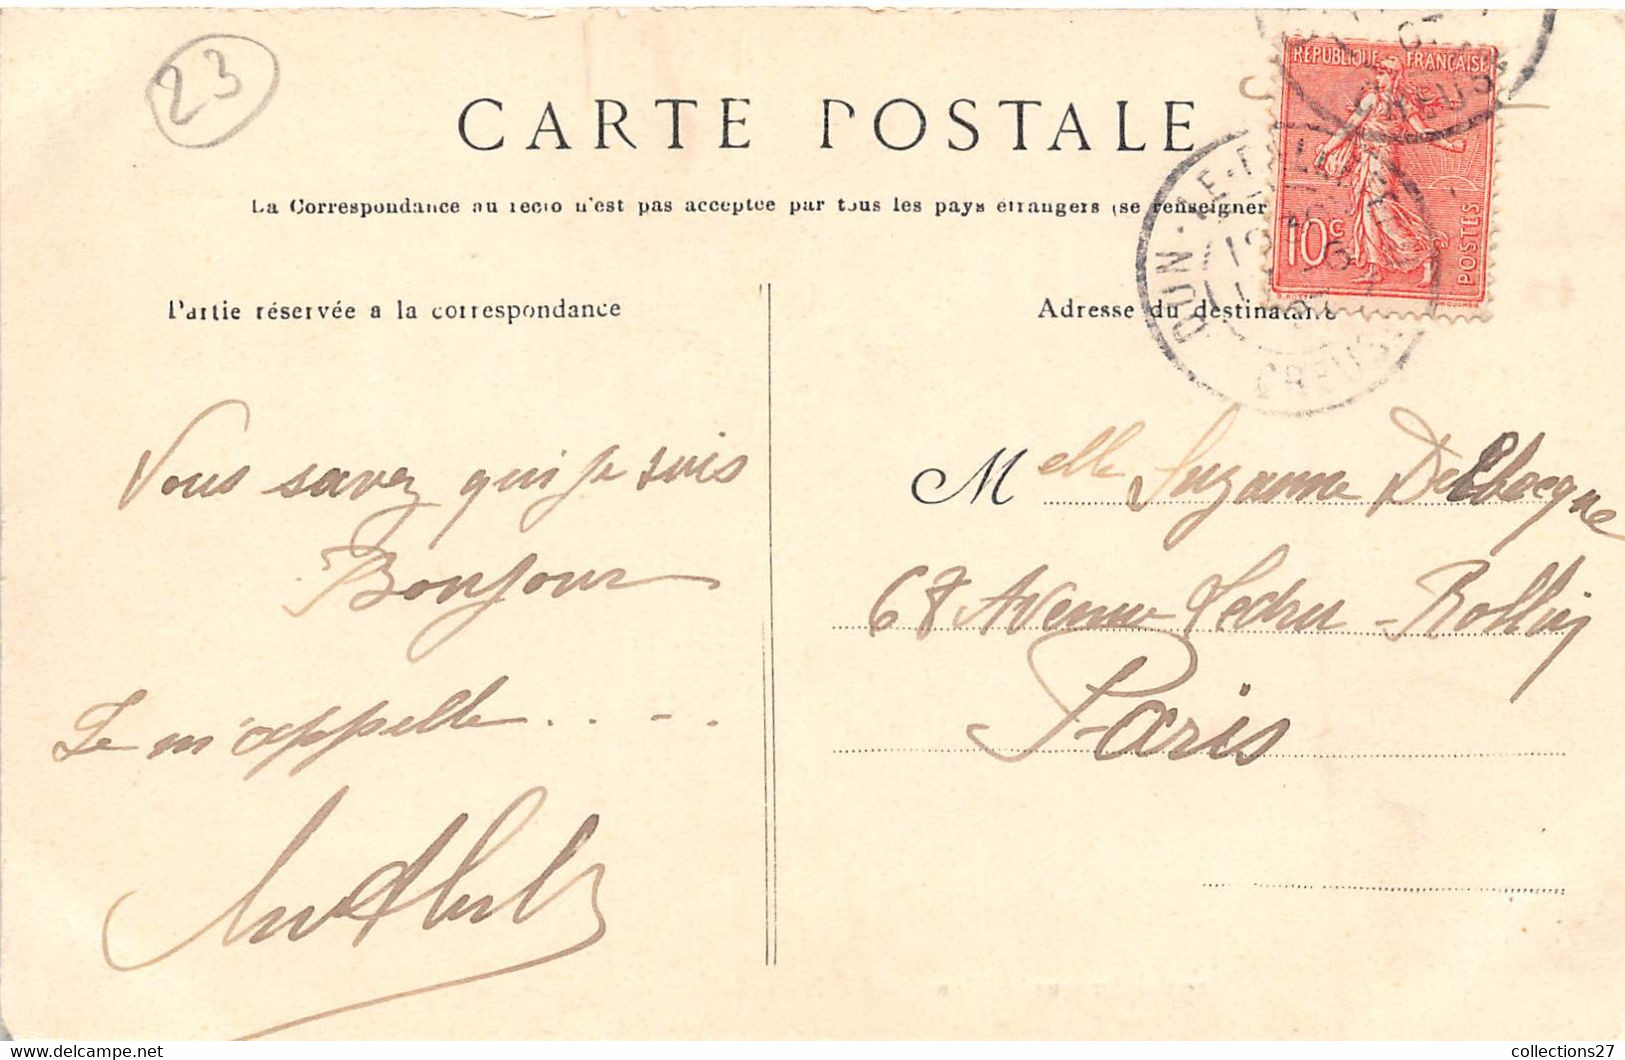 23
CARTE POSTALE
La Correspondance au recto n'est pas acceptée par tous les pays étrangers (se renseigner
Partie réservée a la correspondance
Vous savez qui je suis
Bonjour
Je m'appelle . . - .
RÉPUBLIQUE FRANÇAISE
10c
POSTES
DUN-LE-
CREUSE
Adresse du destinataire
Melle Suzanne Delhocque
67 Avenue Ledru-Rollin
Paris
collections27